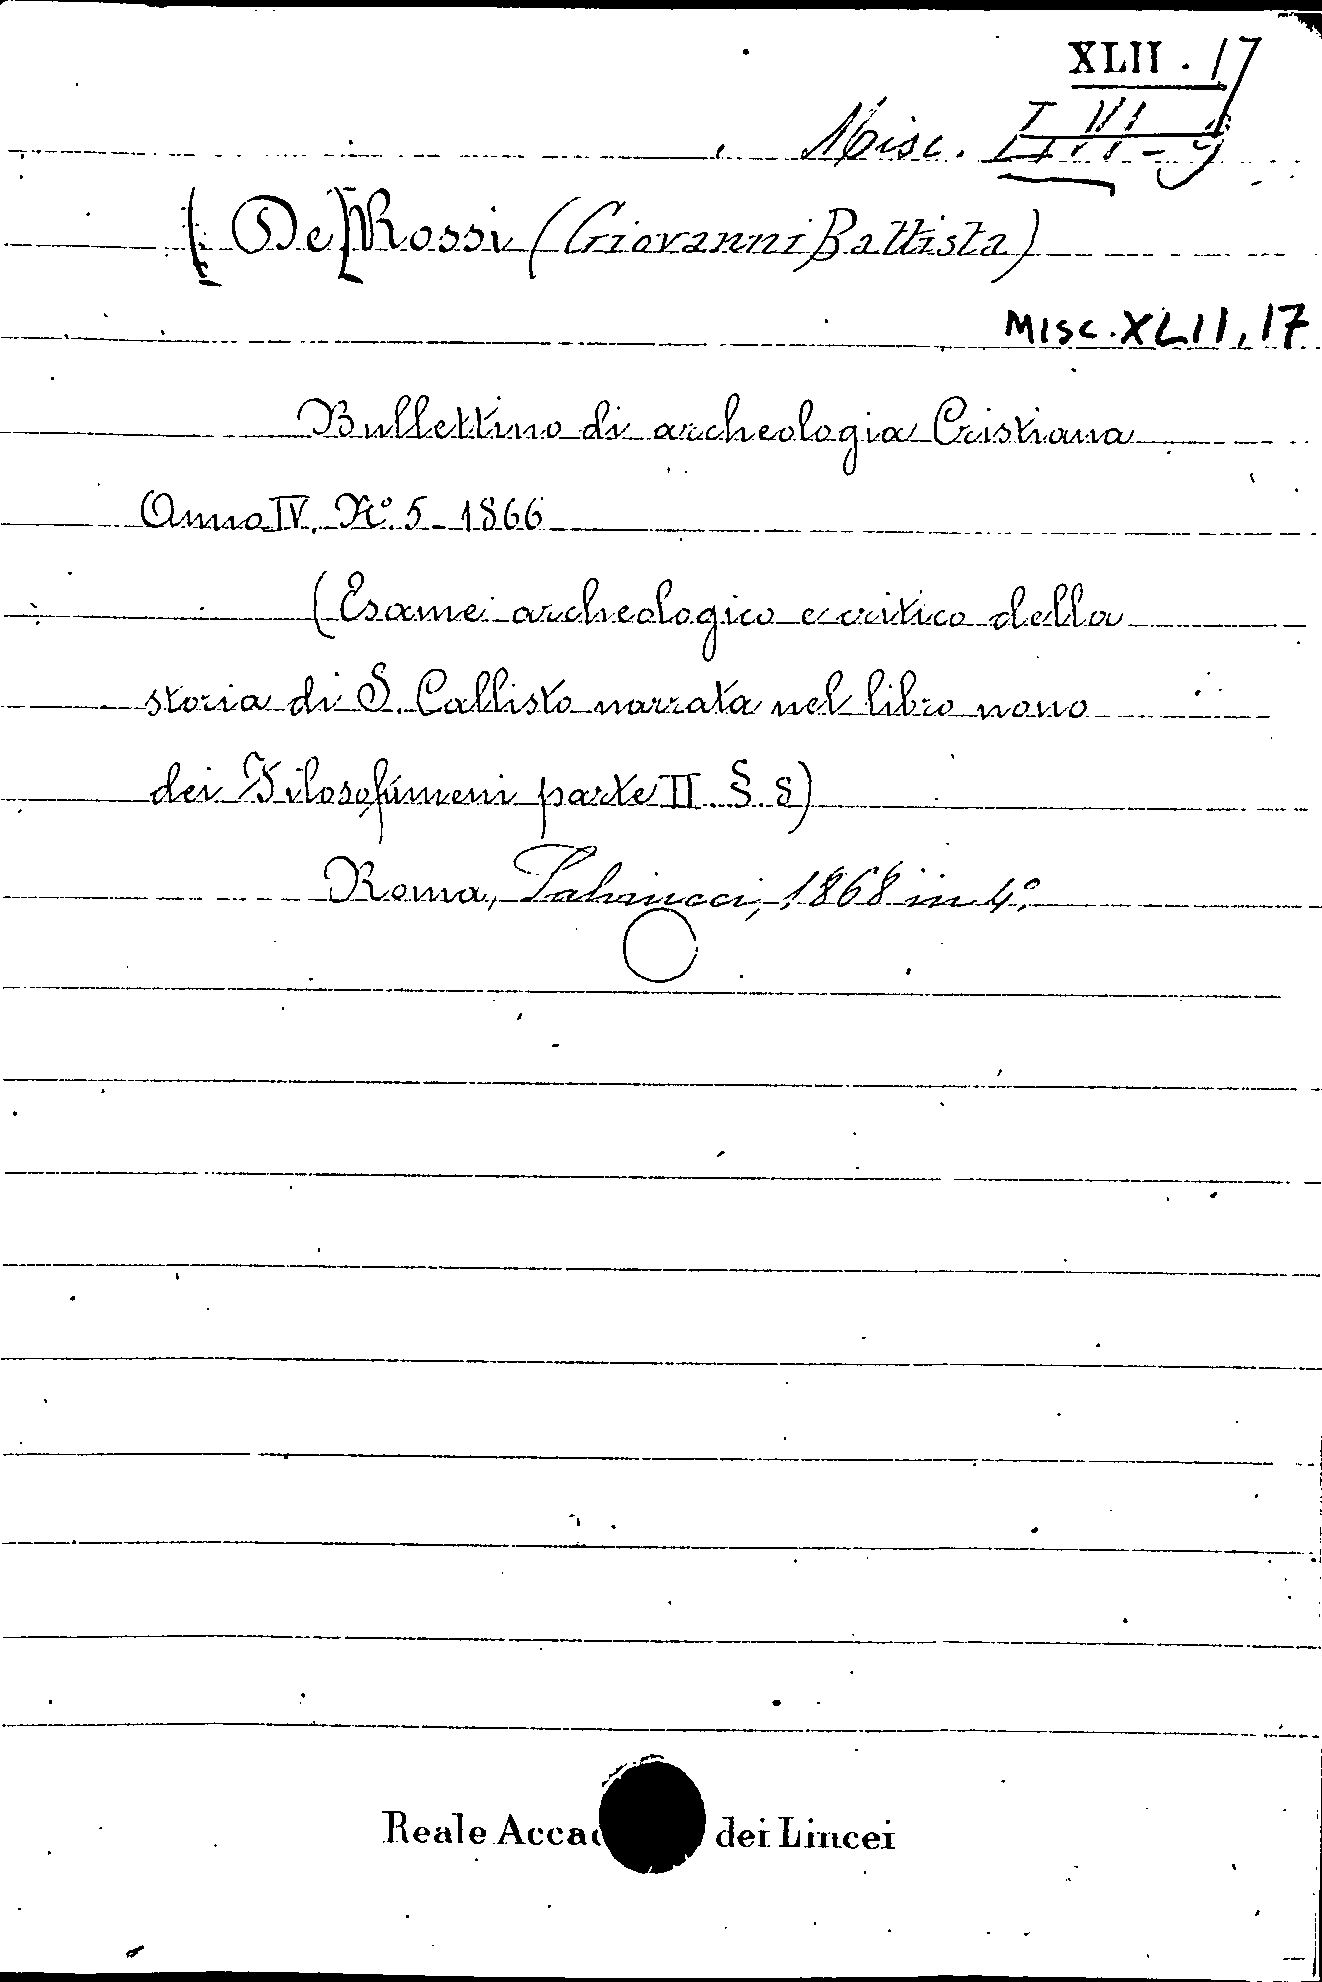 XLII. 17
Misc.
(De) Rossi (Giovanni Battista)
Misc. XLII, 17
Bullettino di archeologia Cristiana
Anno IV. N.º 5 - 1866
(Esame archeologico e critico della
storia di S. Callisto narrata nel libro nono
dei Filosofúmeni parte II §. 8)
Roma, Salviucci, 1868 in 4.º
Reale Acca dei Lincei